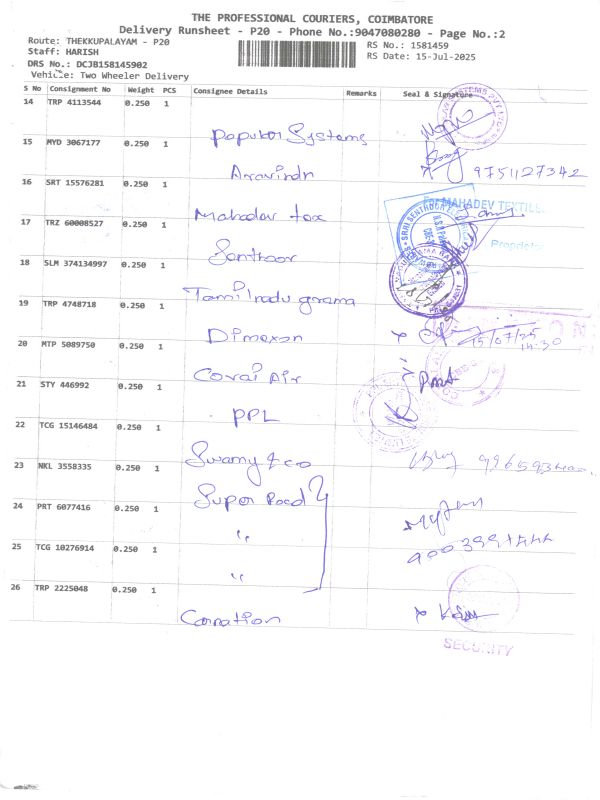 THE PROFESSIONAL COURIERS, COIMBATORE
Delivery Runsheet - P20 - Phone No.:9047080280 - Page No.:2
Route: THEKKUPALAYAM - P20
RS No.: 1581459
Staff: HARISH
RS Date: 15-Jul-2025
DRS No.: DCJB158145902
Vehicle: Two Wheeler Delivery
S No Consignment No Weight PCS Consignee Details Remarks Seal & Signature
14 TRP 4113544 0.250 1
Popular Systems
15 MYD 3067177 0.250 1
Aravindn 9751127342
16 SRT 15576281 0.250 1
Mahadev tex
MAHADEV TEXTILES
17 TRZ 60008527 0.250 1
Santhoor
Propriet
18 SLM 374134997 0.250 1
Tamilnadu grama
19 TRP 4748718 0.250 1
Dimexon
15/07/25
14.30
20 MTP 5089750 0.250 1
Covai Air
21 STY 446992 0.250 1
PPL
22 TCG 15146484 0.250 1
Swamy & co
23 NKL 3558335 0.250 1
Super Road
24 PRT 6077416 0.250 1
"
25 TCG 10276914 0.250 1
"
26 TRP 2225048 0.250 1
Conation
SECURITY